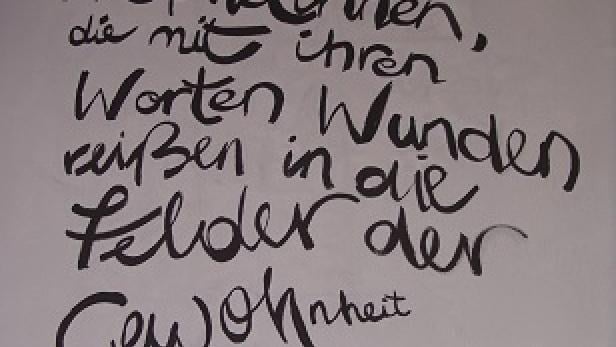 die mit ihren
Worten Wunden
reißen in die
Felder der
Gewohnheit